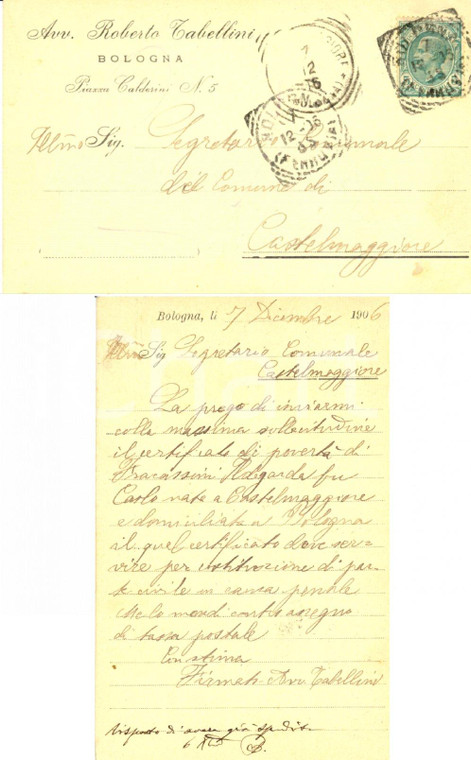 Avv. Roberto Tabellini
BOLOGNA
Piazza Calderini N. 5
Ill.mo Sig. Segretario Comunale
del Comune di
Castelmaggiore
Bologna, li 7 Dicembre 1906
Ill.mo Sig Segretario Comunale
Castelmaggiore
La prego di inviarmi
colla massima sollecitudine
il certificato di povertà di
Fracassini Ildegarda fu
Carlo nata a Castelmaggiore
e domiciliata a Bologna
il quel certificato deve ser=
vire per costituzione di par=
te civile in causa penale
Me lo mandi contro assegno
di tassa postale
Con stima
Firmato Avv. Tabellini
Risposto di avere già spedito